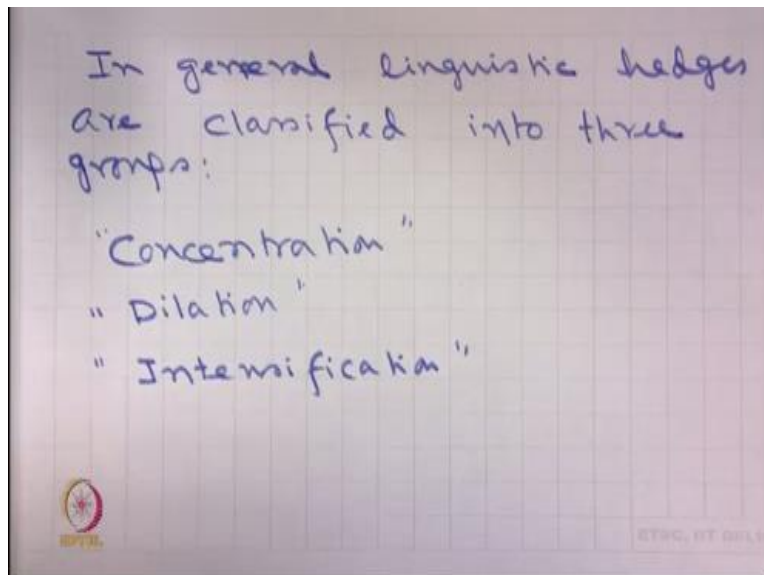 In general linguistic hedges
are classified into three
groups:
"Concentration"
"Dilation"
"Intensification"
NPTEL
ETSC, IIT DELHI